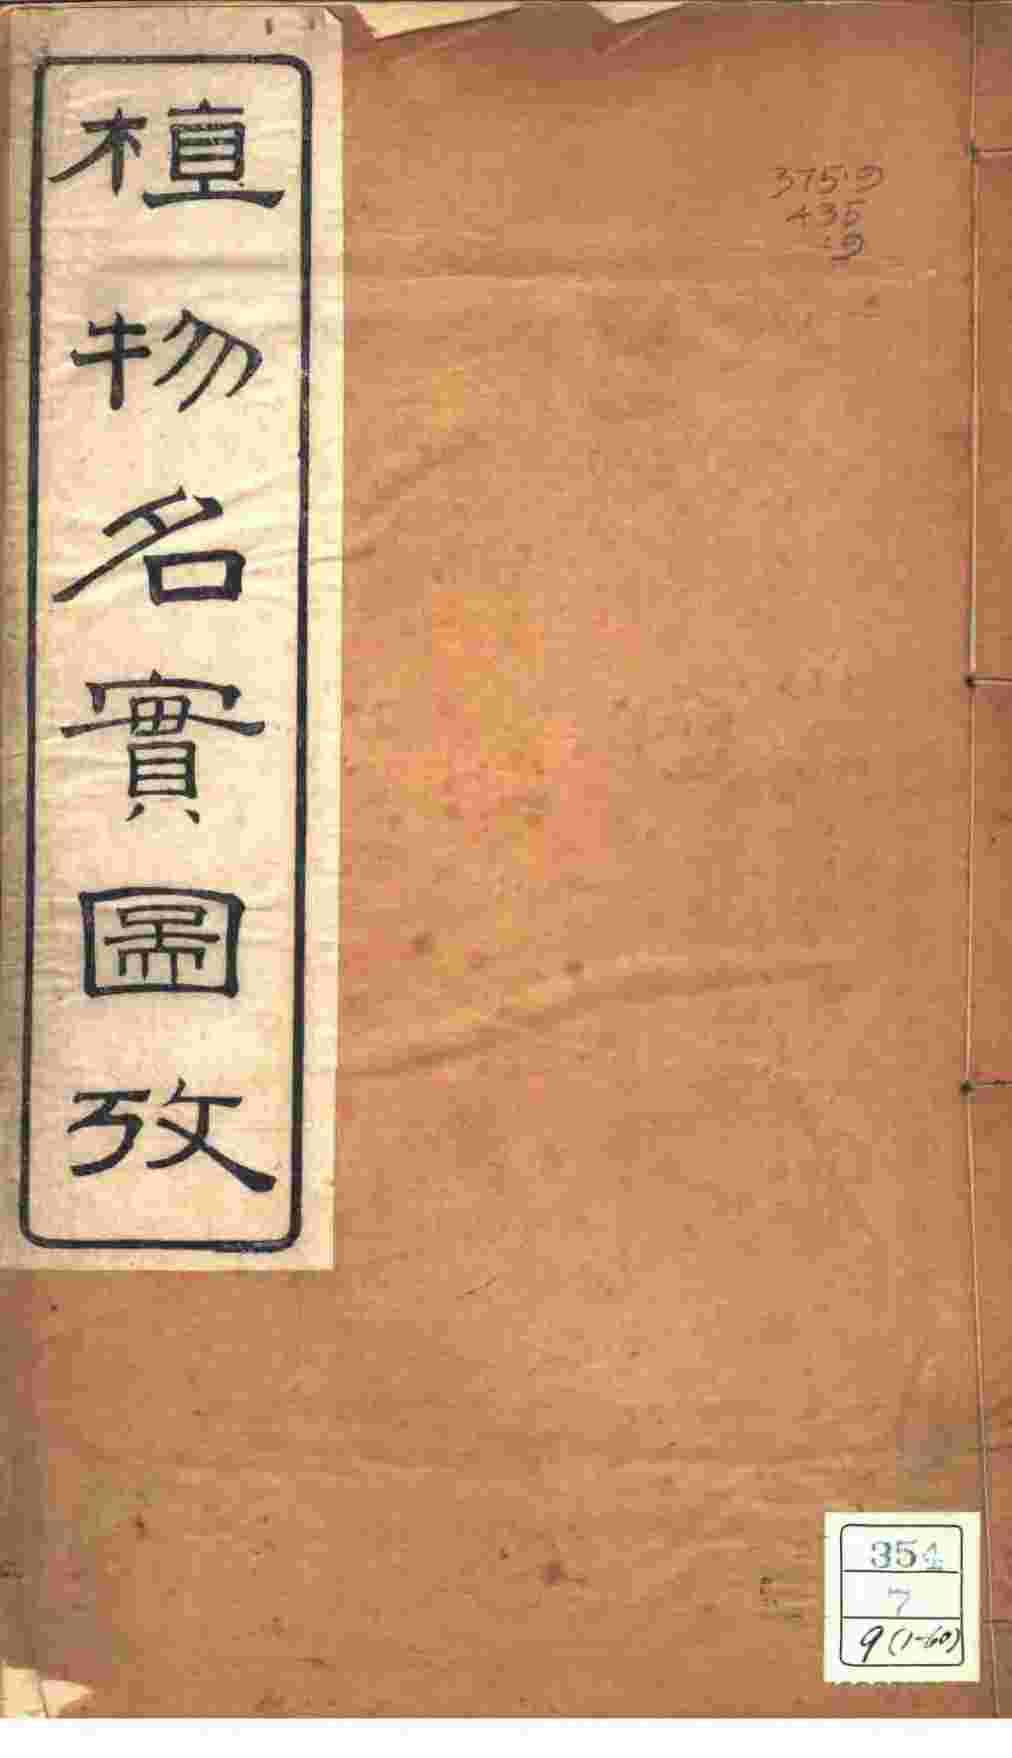 植物名實圖攷
375.9
435
:9
354
7
9(1-60)